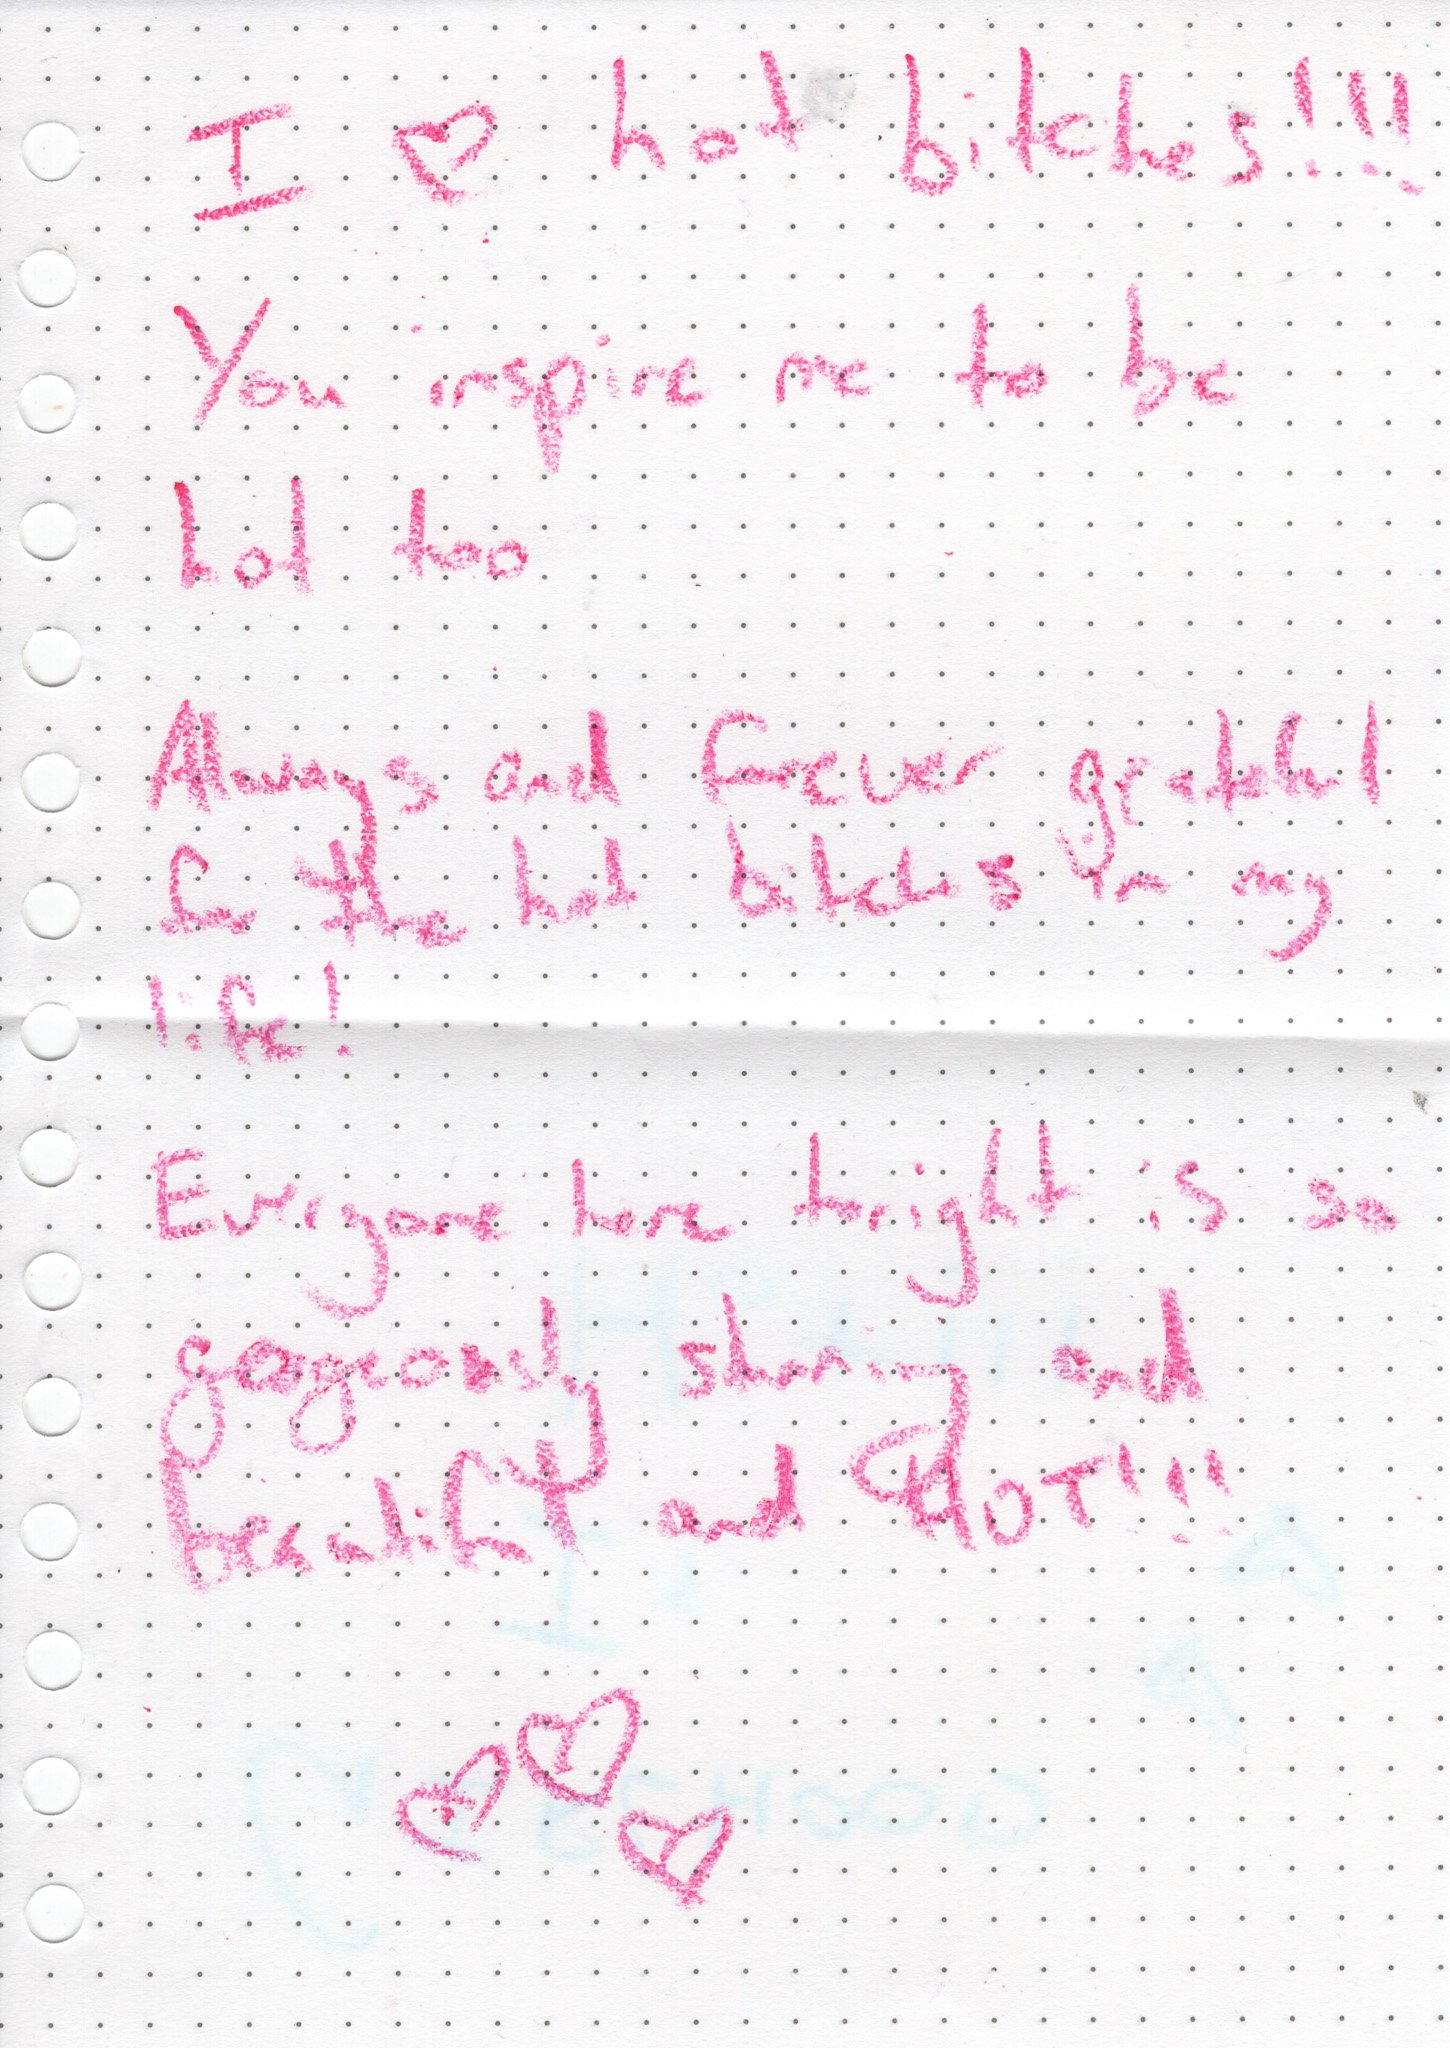 I ♡ hot bitches!!!
You inspire me to be
hot too
Always and forever grateful
for the hot bitches in my
life!
Everyone here tonight is so
gorgeously shining and
beautiful and HOT!!!